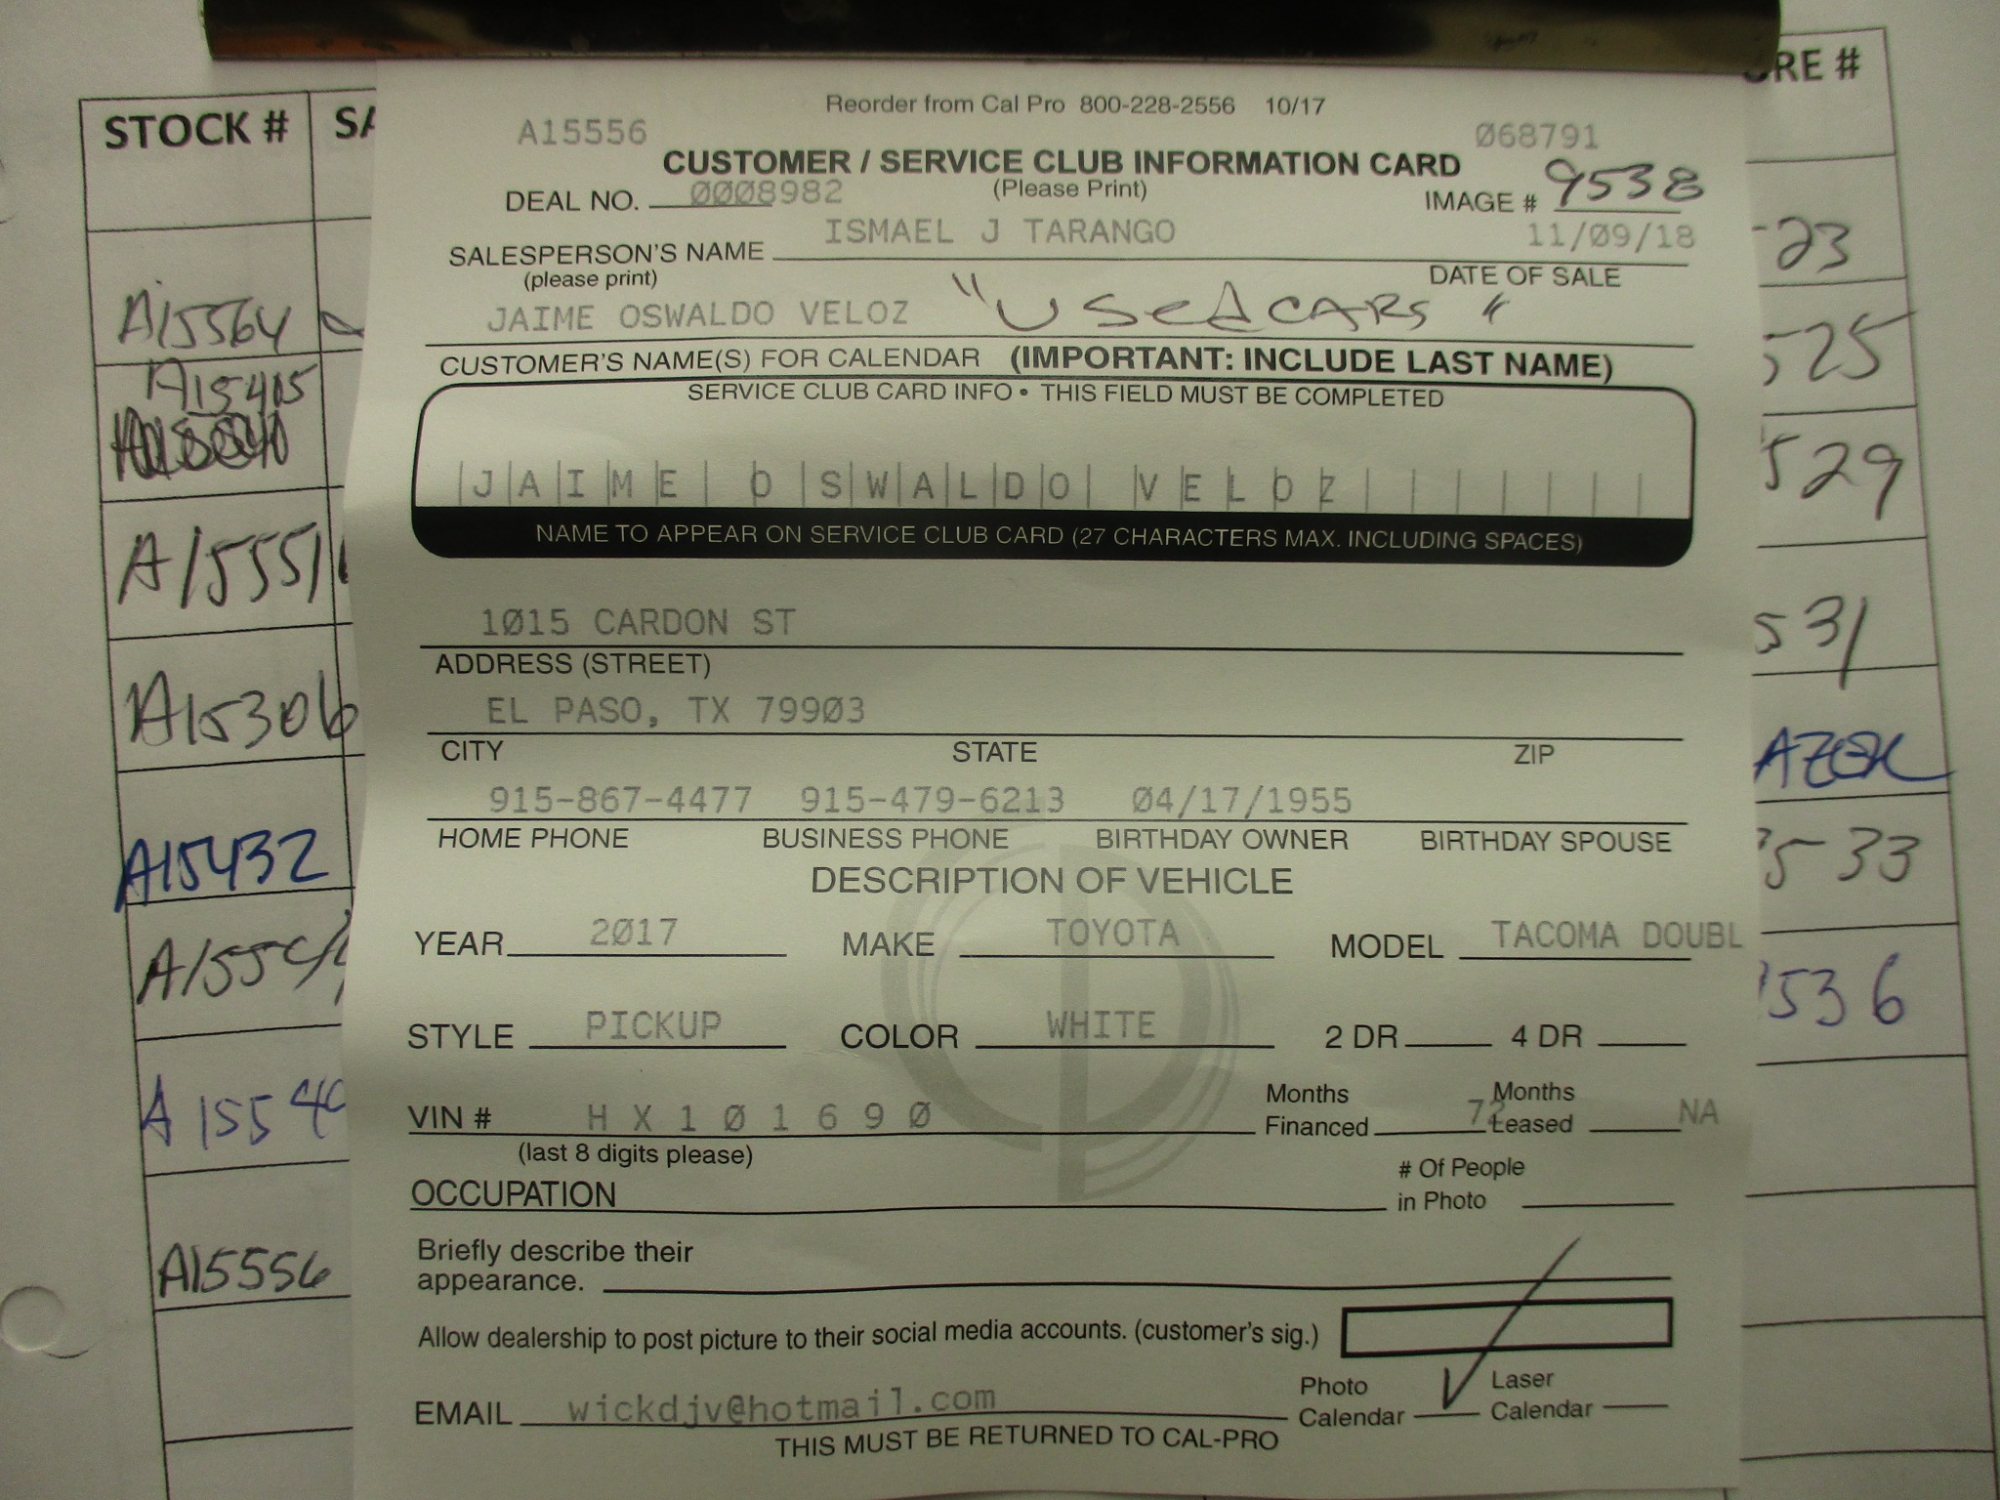 STOCK #
SA
RE #
A15564
A15405
A15551
A15306
A15432
A1554
A15556
23
525
529
531
AZER
533
536
Reorder from Cal Pro 800-228-2556 10/17
A15556 068791
CUSTOMER / SERVICE CLUB INFORMATION CARD
(Please Print)
DEAL NO. 0008982 IMAGE # 9538
ISMAEL J TARANGO 11/09/18
SALESPERSON'S NAME DATE OF SALE
(please print)
JAIME OSWALDO VELOZ "USed CARS"
CUSTOMER'S NAME(S) FOR CALENDAR (IMPORTANT: INCLUDE LAST NAME)
SERVICE CLUB CARD INFO • THIS FIELD MUST BE COMPLETED
JAIME OSWALDO VELOZ
NAME TO APPEAR ON SERVICE CLUB CARD (27 CHARACTERS MAX. INCLUDING SPACES)
1015 CARDON ST
ADDRESS (STREET)
EL PASO, TX 79903
CITY STATE ZIP
915-867-4477 915-479-6213 04/17/1955
HOME PHONE BUSINESS PHONE BIRTHDAY OWNER BIRTHDAY SPOUSE
DESCRIPTION OF VEHICLE
YEAR 2017 MAKE TOYOTA MODEL TACOMA DOUBL
STYLE PICKUP COLOR WHITE 2 DR 4 DR
VIN # HX101690 Months Financed 72 Months Leased NA
(last 8 digits please)
OCCUPATION # Of People in Photo
Briefly describe their
appearance.
Allow dealership to post picture to their social media accounts. (customer's sig.)
EMAIL wickdjv@hotmail.com Photo Calendar Laser Calendar
THIS MUST BE RETURNED TO CAL-PRO